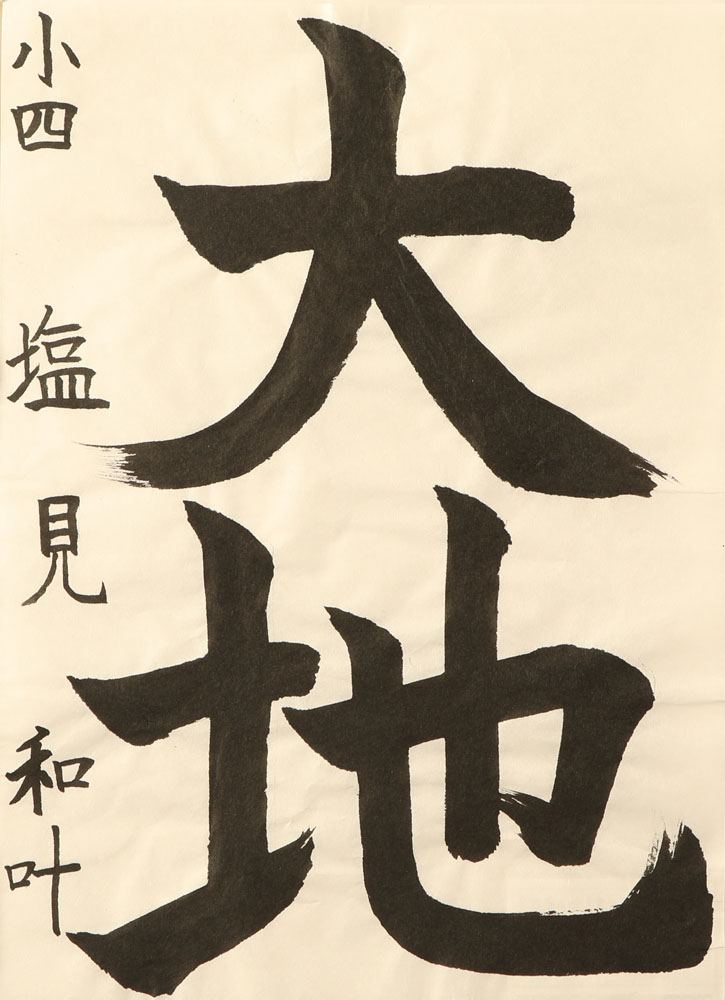 大地
小四 塩見和叶